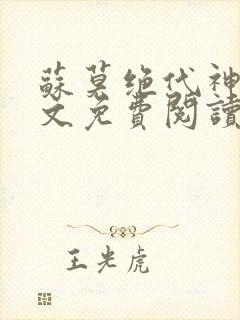 蘇莫绝代神
文免費閱讀
王光虎